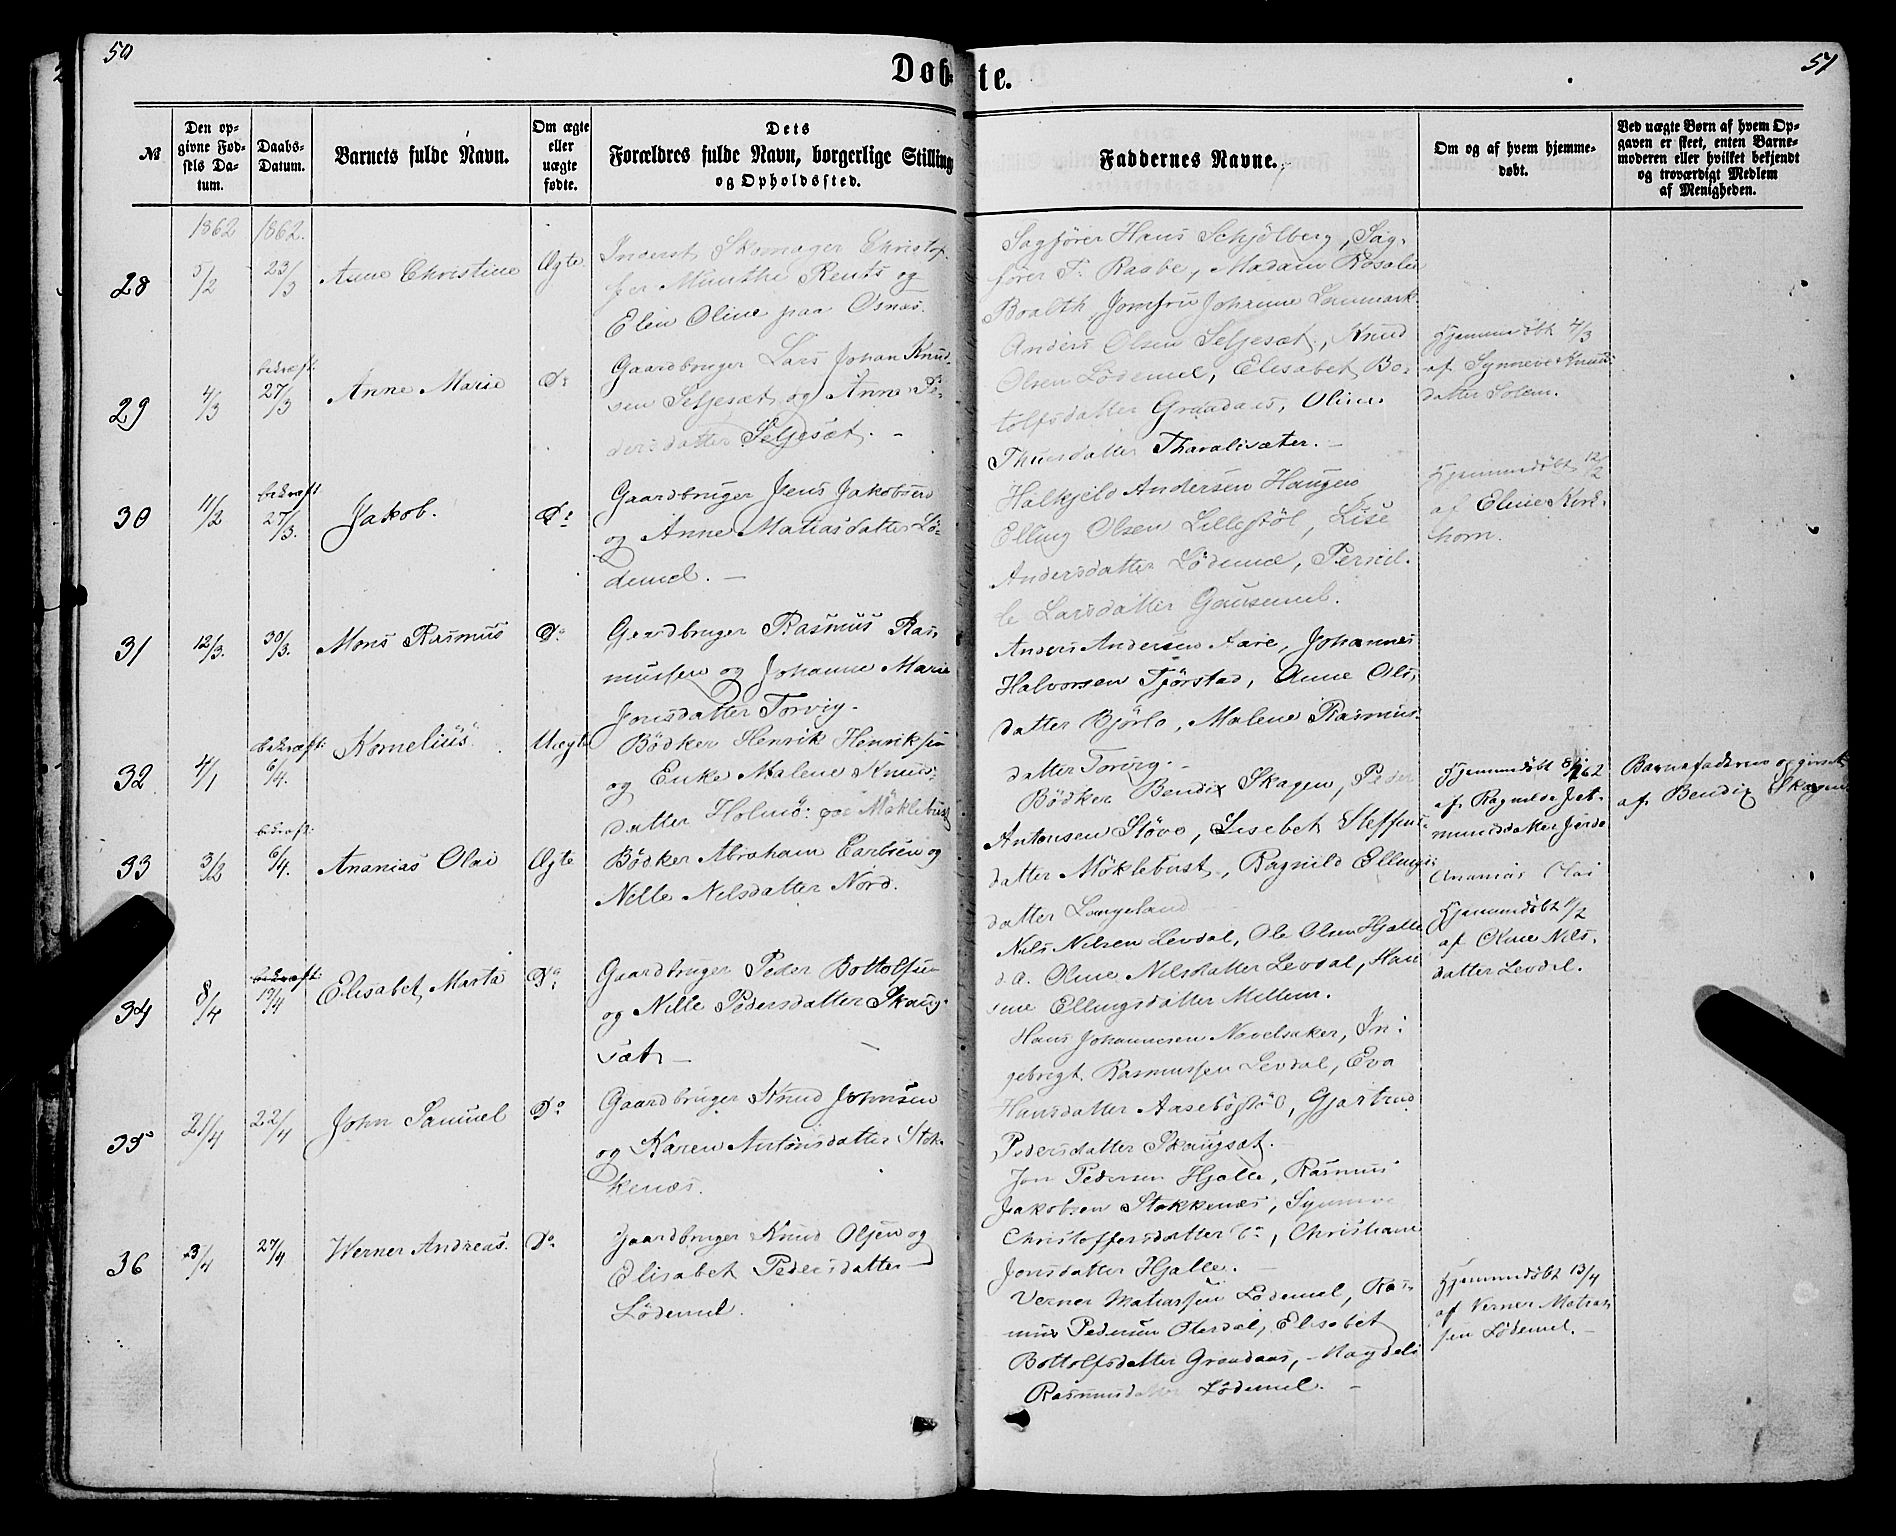 50
Døb-
te.
51
№
Den op-
givne Fød-
sels Da-
tum.
Daabs-
Datum.
Barnets fulde Navn.
Om ægte
eller
uægte
fødte.
Dets
Forældres fulde Navn, borgerlige Stilling
og Opholdssted.
Faddernes Navne.
Om og af hvem hjemme-
døbt.
Ved uægte Børn af hvem Op-
gaven er skeet, enten Barne-
moderen eller hvilket bekjendt
og troværdigt Medlem
af Menigheden.
1862 1862.
28 5/2 23/3 Anne Christine Ægte
Inderst Skomager Christof-
fer Munthe Rents og
Elen Oline paa Osnæs.
Sagfører Hans Schjølberg, Sag-
fører F. Raabe, Madam Rosalie
Boalth, Jomfru Johanne Lonmark.
29 4/3 bekræft: 27/3 Anne Marie Do
Gaardbruger Lars Johan Knud-
sen Seljesæt og Anne Pe-
dersdatter Seljesæt. -
Anders Olsen Seljesæt, Knud
Olsen Lødemel, Elisabet Bo-
tolfsdatter Grandaas, Oline
Thuesdatter Tharaldsæter. -
Hjemmedøbt 4/3
af Synneve Knuds
datter Solem.
30 11/2 bekræft 27/3. Jakob. Do
Gaardbruger Jens Jakobsen
og Anne Matiasdatter Lø-
demel. -
Halkjeld Andersen Haugen
Elling Olsen Lillestøl, Lise
Andersdatter Lødemel, Pernil-
le Larsdatter Gausemel.
Hjemmedøbt 12/2
af Eline Kirk-
horn.
31 12/3. 30/3. Mons Rasmus Do
Gaardbruger Rasmus Ras-
mussen og Johanne Marie
Jonsdatter Torvig.
Anders Andersen Aare, Johannes
Halvorsen Fjørstad, Anne Ols-
datter Bjørlo, Malene Rasmus-
datter Torvig. -
32 4/1 bekræft: 6/4. Kornelius Uægte
Bødker Henrik Henriksen
og Enke Malene Knuds-
datter Holmø: paa Møklebust
Bødker Bendix Skagen, Peder
Antonsen Støve, Lisebet Steffens-
datter Møklebust, Ragnild Ellings-
datter Langeland
Hjemmedøbt 8/1 62
af Ragnilde Jet-
mundsdatter Førde
Barnefaderen opgivet
af Bendix Skagen
33 3/2 bekræft: 6/4. Ananias Olai Ægte
Bødker Abraham Carlsen og
Nille Nilsdatter Nord.
Nils Nilsen Levdal, Ole Olsen Hjelle
d.a. Oline Nilsdatter Levdal, Han
sine Ellingsdatter Mellem.
Ananias Olai
Hjemmedøbt 11/2
af Oline Nils-
datter Levdal.
34 8/4 bekræft: 19/4 Elisabet Marta Do
Gaardbruger Peder Bottolfsen
og Nille Pedersdatter Skaug-
sæt -
Hans Johannesen Novelsaker, In-
gebrigt Rasmussen Levdal, Eva
Hansdatter Aasebøstøl, Gjartrud
Pedersdatter Skaugsæt. -
35 21/4 22/4 John Samuel Do
Gaardbruger Knud Johnsen
og Karen Antonsdatter Stok-
kenæs.
Jon Pedersen Hjelle, Rasmus
Jakobsen Stokkenæs, Synneve
Christoffersdatter Do, Christiane
Jonsdatter Hjelle. -
36 3/4 27/4 Werner Andreas. Do
Gaardbruger Knud Olsen og
Elisabet Pedersdatter -
Lødemel.
Verner Matiassen Lødemel, Ras-
mus Pedersen Oterdal, Elisabet
Bottolfsdatter Grandaas, Magdeli
Rasmusdatter Lødemel. -
Hjemmedøbt 13/4
af Verner Matias
sen Lødemel. -